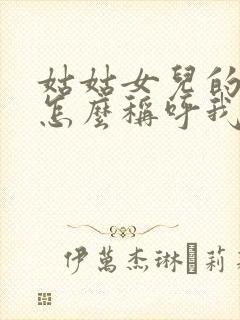 姑姑女兒的
怎麼稱呼我
伊萬杰琳·莉莉